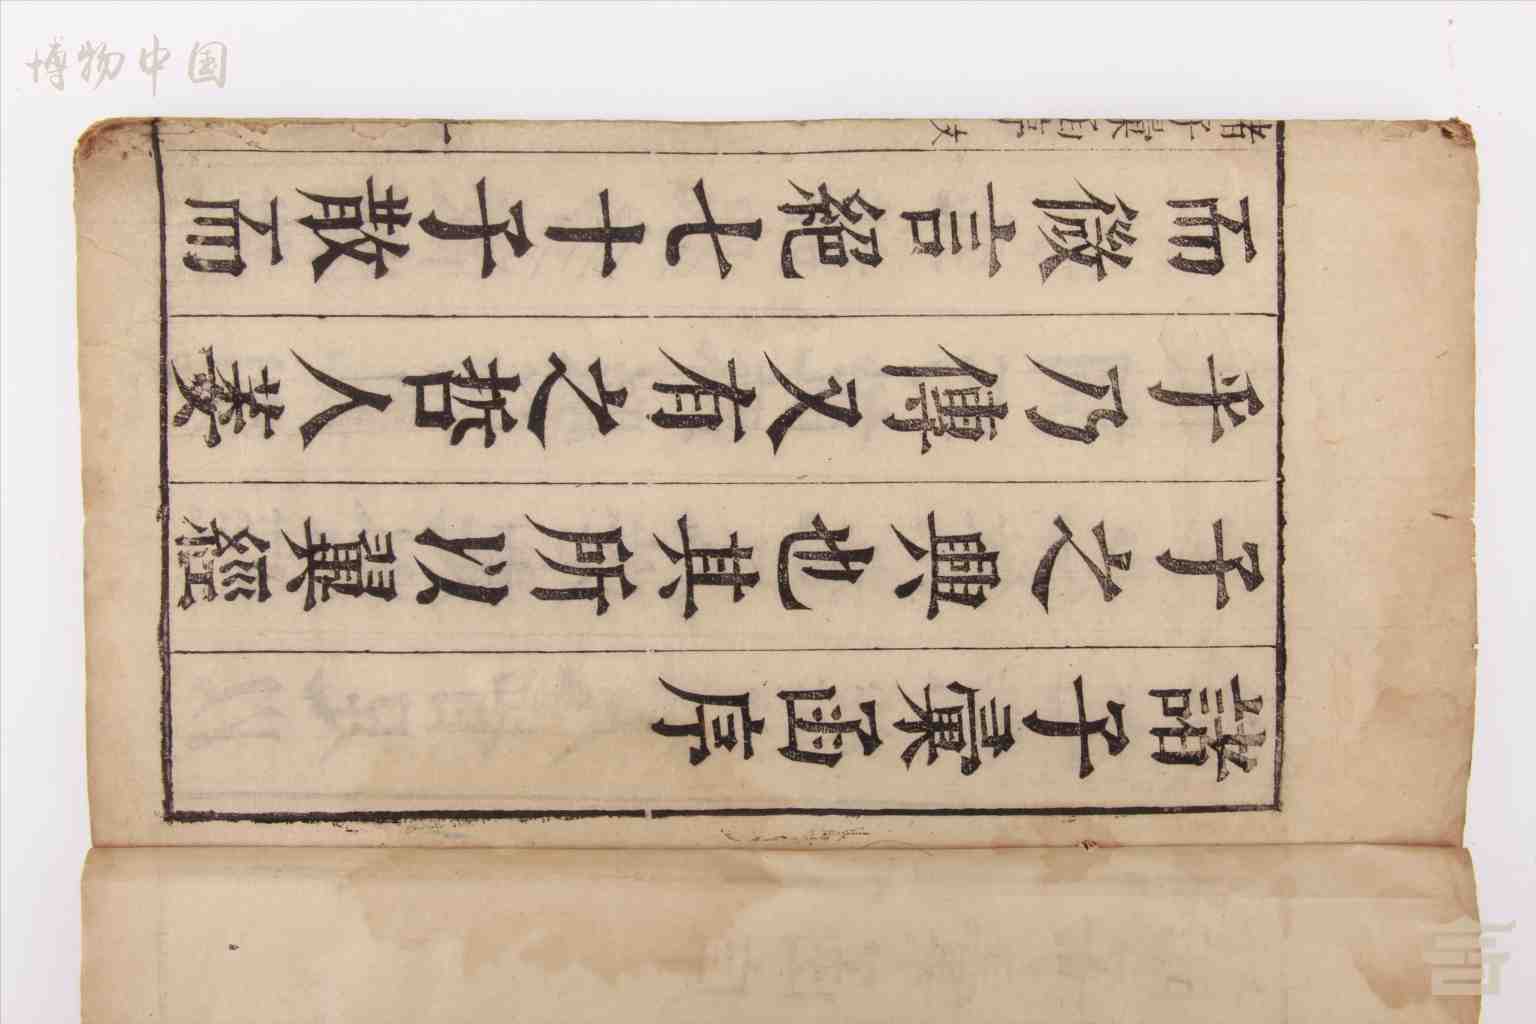 博物中国
諸子彙函序
子之興也其所以翼經
乎乃傳又有之哲人萎
而微言絕七十子散而
諸子彙函序